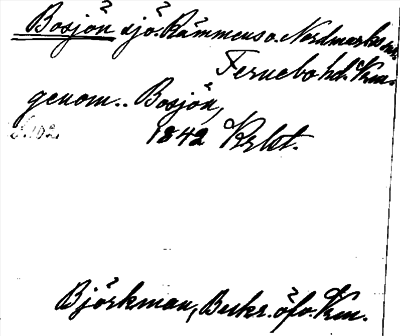 Bosjön sjö. Rämmens o. Nordmarks snr
Fernebo hd. Vrm.
genom.. Bosjön,
1842 Krkt.
Björkman, Beskr. öfv. Vrm.